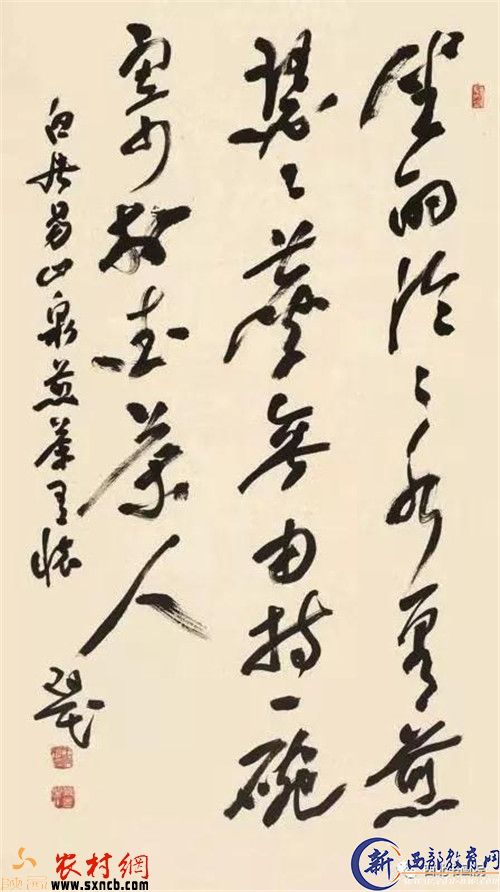 坐酌泠々水看煎
瑟々塵無由持一碗
寄与爱茶人
白居易山泉煎茶有懐
农村網
www.sxncb.com
新 西部教育网